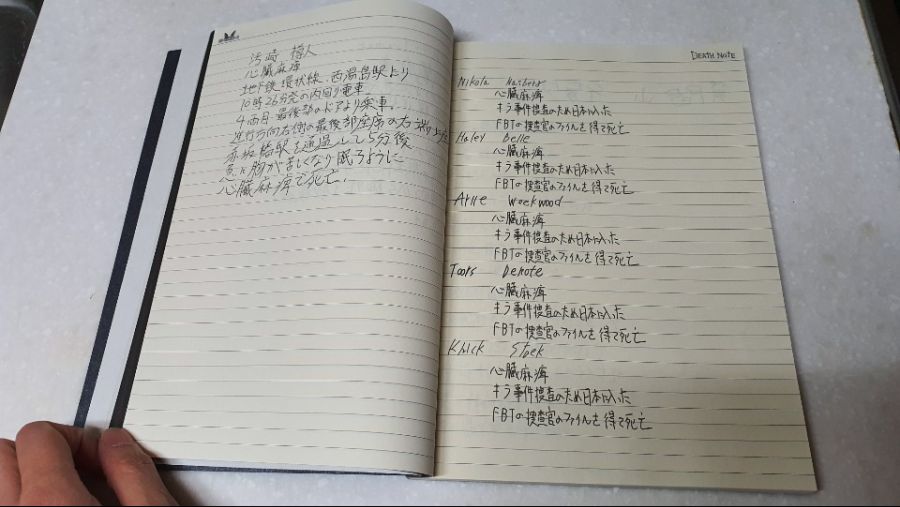 心臓麻痺
地下鉄 環状線 西湯島駅より
10時26分発の内回り電車。
4両目 最後部のドアより乗車。
進行方向右側の最後部座席の右端に
赤坂橋駅を通過した5分後
急に胸が苦しくなり眠るように
心臓麻痺で死亡.
DEATH NOTE
Nikola
心臓麻痺
キラ事件捜査のため日本に入った
FBIの捜査官のファイルを得て死亡
Haley Belle
心臓麻痺
キラ事件捜査のため日本に入った
FBIの捜査官のファイルを得て死亡
Arire Weekwood
心臓麻痺
キラ事件捜査のため日本に入った
FBIの捜査官のファイルを得て死亡
Toors Denote
心臓麻痺
キラ事件捜査のため日本に入った
FBIの捜査官のファイルを得て死亡
Knick Staek
心臓麻痺
キラ事件捜査のため日本に入った
FBIの捜査官のファイルを得て死亡